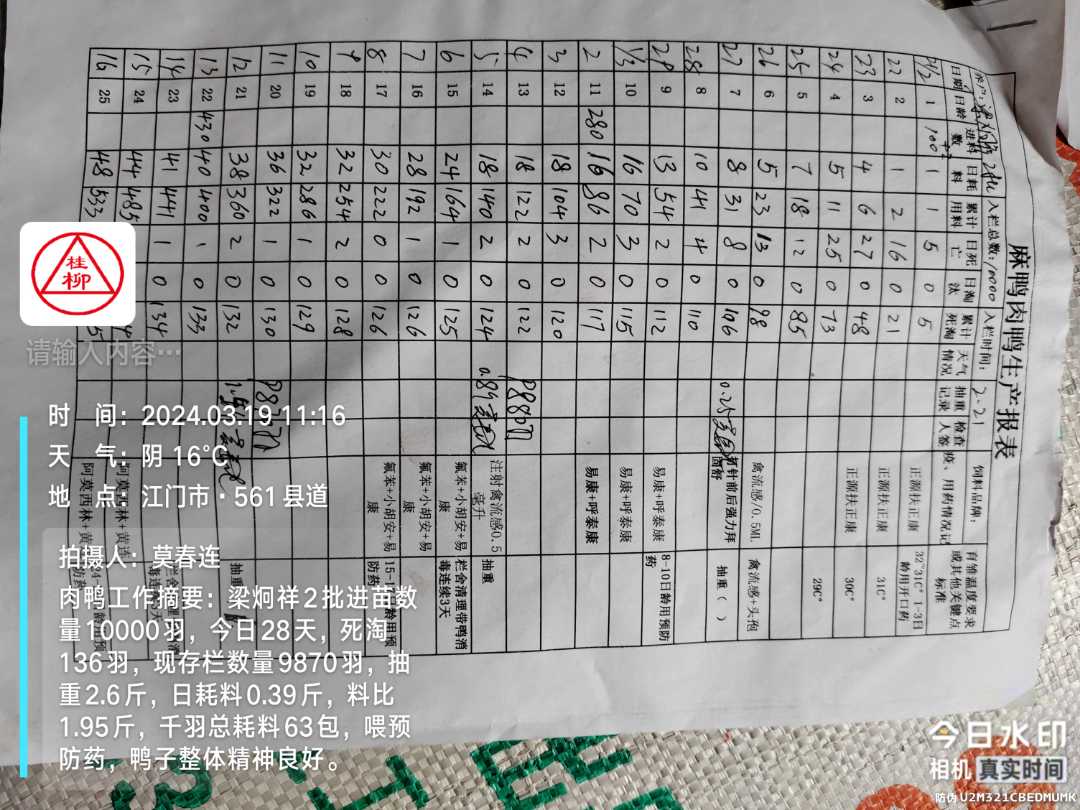 麻鸭肉鸭生产报表
2批 入栏总数:10000 入栏时间: 2.21 饲料品牌:
日期 日龄 进料数 日耗料 累计用料 日死亡 日淘汰 累计死淘 天气情况 抽重记录 检查人签 疫、用药情况记 育雏温度要求或其他关键点标准
21/2 1 100 1 1 5 0 5 正源扶正康 32~31C° 1-3日龄用开口药
22 2 1 2 16 0 21 正源扶正康 31C°
23 3 4 6 27 0 48 正源扶正康 30C°
24 4 5 11 25 0 73 29C°
25 5 7 18 12 0 85
26 6 5 23 13 0 98 禽流感/0.5ML 禽流感+头孢
27 7 8 31 8 0 106 0.25 打针前后强力拜固舒 抽重( )
28 8 10 41 4 0 110
29 9 13 54 2 0 112 易康+呼泰康 8-10日龄用预防药
1/3 10 16 70 3 0 115 易康+呼泰康
2 11 280 16 86 2 0 117 易康+呼泰康
3 12 18 104 3 0 120
4 13 18 122 2 0 122
5 14 18 140 2 0 124 注射禽流感0.5毫升 抽重
6 15 24 164 1 0 125 氟苯+小胡安+易康 栏舍清理带鸭消毒连续3天
7 16 28 192 1 0 126 氟苯+小胡安+易康
8 17 30 222 0 0 126 氟苯+小胡安+易康
9 18 32 254 2 0 128
10 19 32 286 1 0 129
11 20 36 322 1 0 130
12 21 38 360 2 0 132 抽重
13 22 430 40 400 1 0 133
14 23 41 441 1 0 134
15 24 44 485 1
16 25 48 533
桂
柳
请输入内容…
时 间：2024.03.19 11:16
天 气：阴 16°C
地 点：江门市·561县道
拍摄人：莫春连
肉鸭工作摘要：梁炯祥2批进苗数
量10000羽，今日28天，死淘
136羽，现存栏数量9870羽，抽
重2.6斤，日耗料0.39斤，料比
1.95斤，千羽总耗料63包，喂预
防药，鸭子整体精神良好。
今日水印
相机 真实时间
防伪 U2M321CBEDMUMK